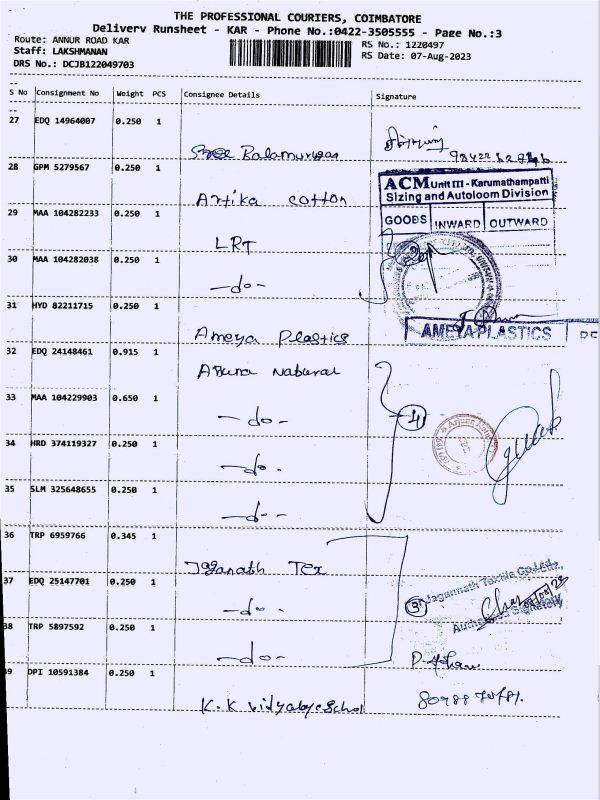 THE PROFESSIONAL COURIERS, COIMBATORE
Delivery Runsheet - KAR - Phone No.:0422-3505555 - Page No.:3
Route: ANNUR ROAD KAR
Staff: LAKSHMANAN
DRS No.: DCJB122049703
RS No.: 1220497
RS Date: 07-Aug-2023
S No Consignment No Weight PCS Consignee Details Signature
27 EDQ 14964007 0.250 1
Sree Balamurugan
28 GPM 5279567 0.250 1
Artika cotton
ACM Unit III - Karumathampatti
Sizing and Autoloom Division
GOODS INWARD OUTWARD
29 MAA 104282233 0.250 1
LRT
30 MAA 104282038 0.250 1
-do-
31 HYD 82211715 0.250 1
Ameya Plastics
AMEYA PLASTICS
32 EDQ 24148461 0.915 1
Natural
33 MAA 104229903 0.650 1
-do-
4
34 HRD 374119327 0.250 1
-do-
35 SLM 325648655 0.250 1
-do-
36 TRP 6959766 0.345 1
Jaganath Tex
37 EDQ 25147701 0.250 1
-do-
3
Jagannath Textile Co Ltd.,
Authorised Signatory
38 TRP 5897592 0.250 1
-do-
39 DPI 10591384 0.250 1
K.K